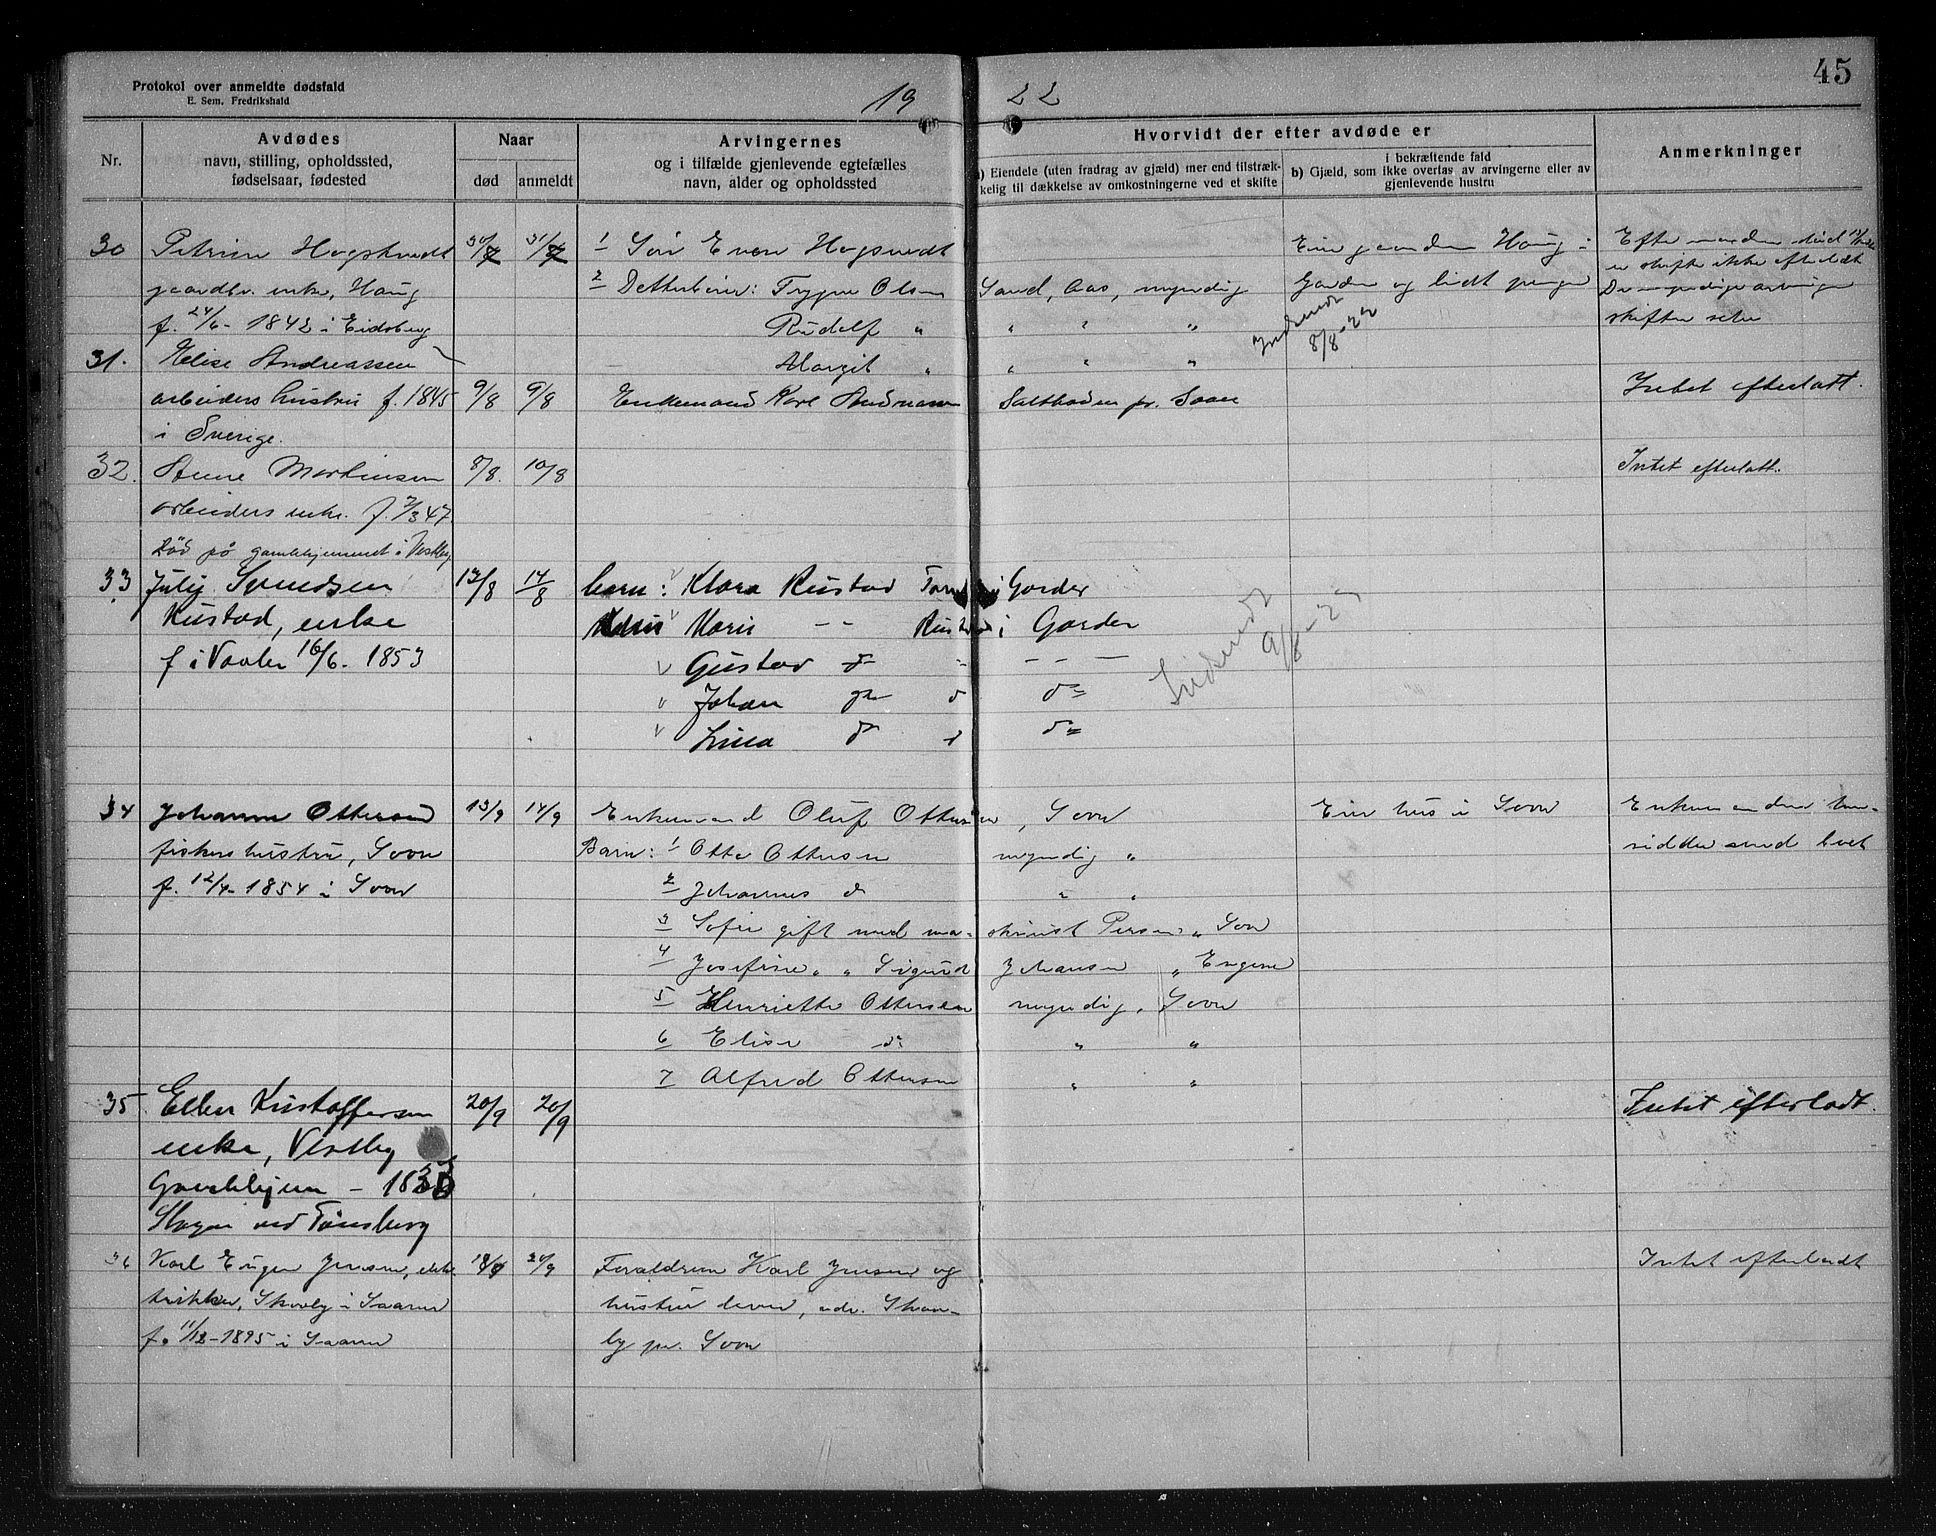 45
Protokol over anmeldte dødsfald
E. Sem. Fredrikshald
19 22
Nr.
Avdødes
navn, stilling, opholdssted,
fødselsaar, fødested
Naar
død anmeldt
Arvingernes
og i tilfælde gjenlevende egtefælles
navn, alder og opholdssted
Hvorvidt der efter avdøde er
a) Eiendele (uten fradrag av gjæld) mer end tilstræk-
kelig til dækkelse av omkostningerne ved et skifte
i bekræftende fald
b) Gjæld, som ikke overtas av arvingerne eller av
gjenlevende hustru
Anmerkninger
30 Petrine Hogstvedt 30/7 31/7 1 Søn Even Hogstvedt
gaardbr. enke, Haug 2 Datterbörn: Trygve Olsen Sand, Aas, myndig
f. 24/6 - 1842 i Eidsberg Rudolf " " " "
Eier gaarden Haug i
Garder og lidt penge
Indsendt
8/8-22
Efter manden død
er skifte ikke
De myndige arvinger
skifter selv
Margit " " " "
31. Elise Andreassen
arbeiders hustru f. 1845 9/8 9/8 Enkemand Karl Andreassen Saltboden pr. Soon Intet efterladt.
i Sverige.
32. Anne Martinsen 8/8. 10/8 Intet efterlatt.
arbeiders enke. f. 7/3 47.
Död på gamlehjemmet i Vestby
33 Julie Svendsen 13/8 14/8 barn: Klara Rustad i Garder
Rustad, enke Karis Maris - - Rustad i Garder
f i Vaaler 16/6 - 1853 Gustav do - - -
Johan do do do
Lina do do do
Indsendt
9/8-27
34 Johanne Ottersen 13/9 14/9 Enkemand Oluf Ottersen, Soon Eier hus i Soon Enkemanden hen-
fiskers hustru, Soon Barn: 1 Otto Ottersen myndig " sidder med boet
f. 12/4 - 1854 i Soon 2 Johannes do " "
3 Sofie gift med ma- skinist Persen " Soon
4 Josefine " " Sigurd Johansen "
5 Henriette Ottersen myndig, Soon
6 Elise do " "
7 Alfred Ottersen " "
35 Ellen Kristoffersen 20/9 20/9 Intet efterladt.
enke, Vestby
Gamlehjem -
Slagen ved Tønsberg
36 Karl Eugen Jensen, elek- Forældrene Karl Jensen og Intet efterladt
triker, Skovby i Saaner hustru lever, adr. Skov-
f. 11/12-1895 i Saaner by pr. Soon